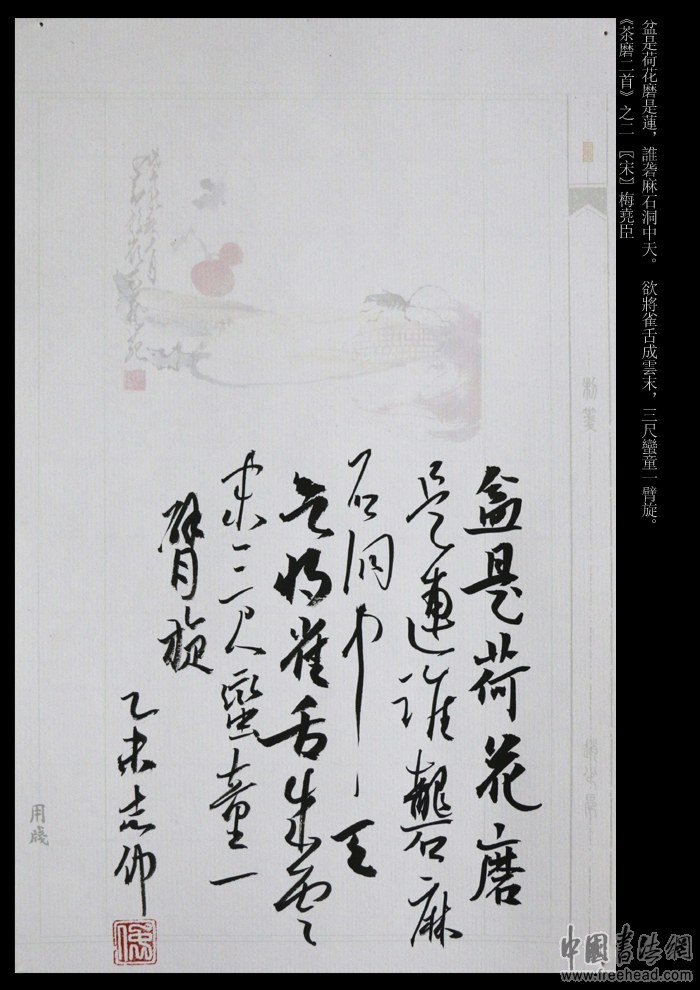 盆是荷花磨是蓮，誰礱麻石洞中天。 欲將雀舌成雲末，三尺蠻童一臂旋。
《茶磨二首》之二 〖宋〗梅堯臣
盆是荷花磨
是連誰礱麻
石洞中天
欲將雀舌成雲
末三尺蠻童一
臂旋
乙未志
用牋
中國書法網
www.freehead.com